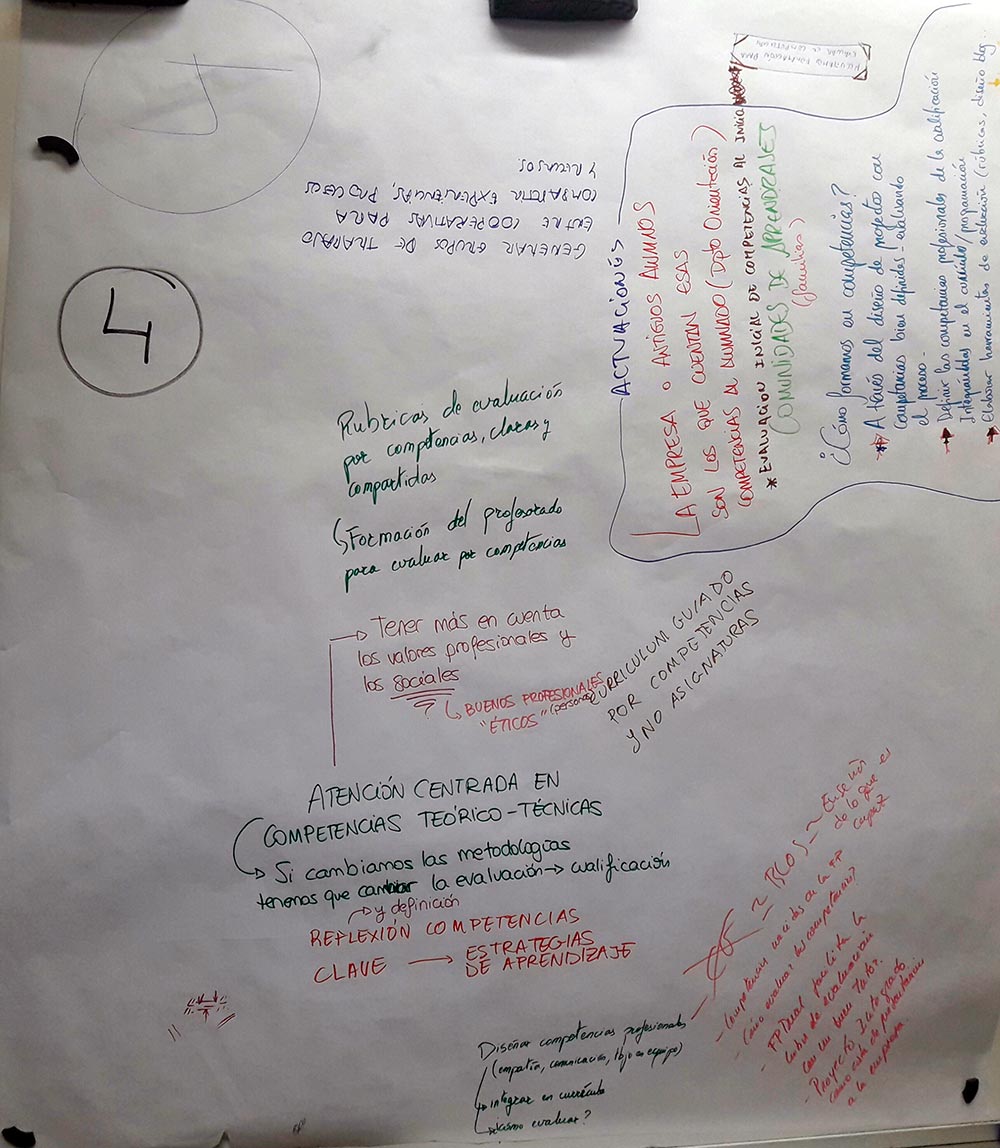 4
GENERAR GRUPOS DE TRABAJO
ENTRE COOPERATIVAS PARA
COMPARTIR EXPERIENCIAS, PROCESOS
Y RECURSOS.
ACTUACIONES
LA EMPRESA O ANTIGUOS ALUMNOS
SON LOS QUE CUENTAN ESAS
COMPETENCIAS AL ALUMNADO (Dpto Orientación)
* EVALUACIÓN INICIAL DE COMPETENCIAS AL INICIO
COMUNIDADES DE APRENDIZAJES
(familias)
¿Cómo formamos en competencias?
A través del diseño de proyectos con
competencias bien definidas - evaluando
el proceso -
Definir las competencias profesionales de la cualificación
Integrándolas en el currículo/programación
Elaborar herramientas de evaluación (rúbricas, diseño blog..
Rubricas de evaluación
por competencias, claras y
compartidas
Formación del profesorado
para evaluar por competencias
→ Tener más en cuenta
los valores profesionales y
los sociales
BUENOS PROFESIONALES
"ÉTICOS"
CURRICULUM GUIADO
POR COMPETENCIAS
Y NO ASIGNATURAS
ATENCIÓN CENTRADA EN
COMPETENCIAS TEÓRICO-TÉCNICAS
→ Si cambiamos las metodologías
tenemos que cambiar la evaluación → cualificación
→ y definición
REFLEXIÓN COMPETENCIAS
CLAVE → ESTRATEGIAS
DE APRENDIZAJE
Diseñar competencias profesionales
(empatía, comunicación, tbjo en equipo)
→ integrar en currículo
→ ¿cómo evaluar?
de lo que es
capaz
- Cómo evaluar las competencias?
- FP Dual facilita la
de evaluación
con un buen tutor.
- Proyecto Integrado
como de presentación
a la empresa